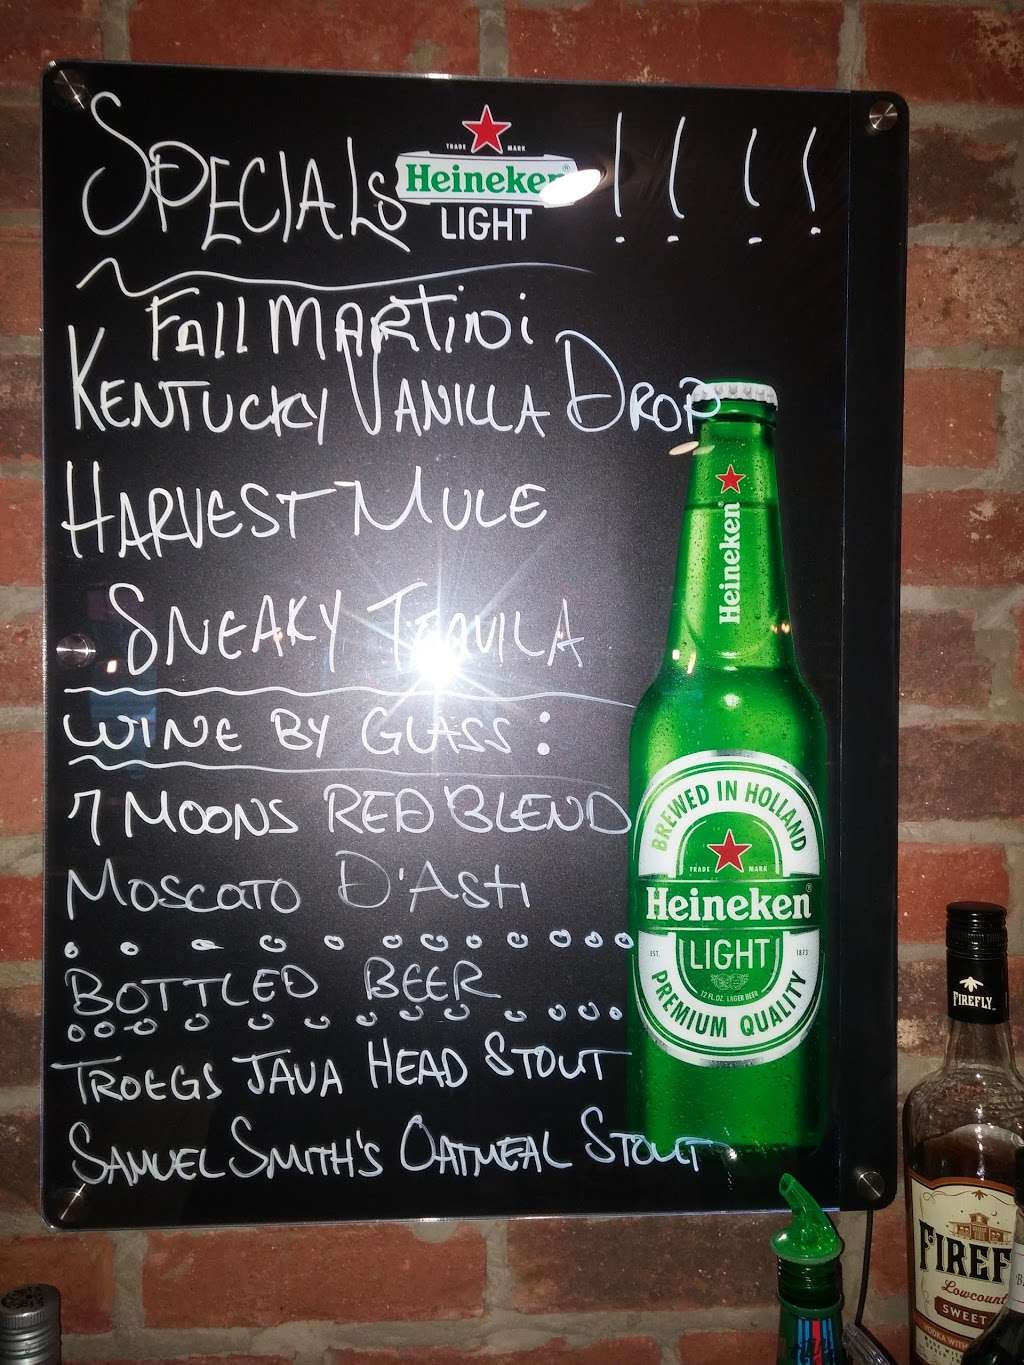 SPECIALS !!!!
TRADE MARK
Heineken
LIGHT
Fall MARTini
KENTUCKY VANILLA DROP
HARVEST MULE
SNEAKY TEQUILA
WINE BY GLASS:
7 MOONS RED BLEND
MOSCATO D'ASti
BOTTLED BEER
TROEGS JAVA HEAD STOUT
SAMUEL SMITH'S OATMEAL STOUT
Heineken®
BREWED IN HOLLAND
TRADE MARK
Heineken®
EST. LIGHT 1873
12 FL. OZ. LAGER BEER
PREMIUM QUALITY
FIREFLY
FIREF
Lowcount
SWEET
VODKA WITH